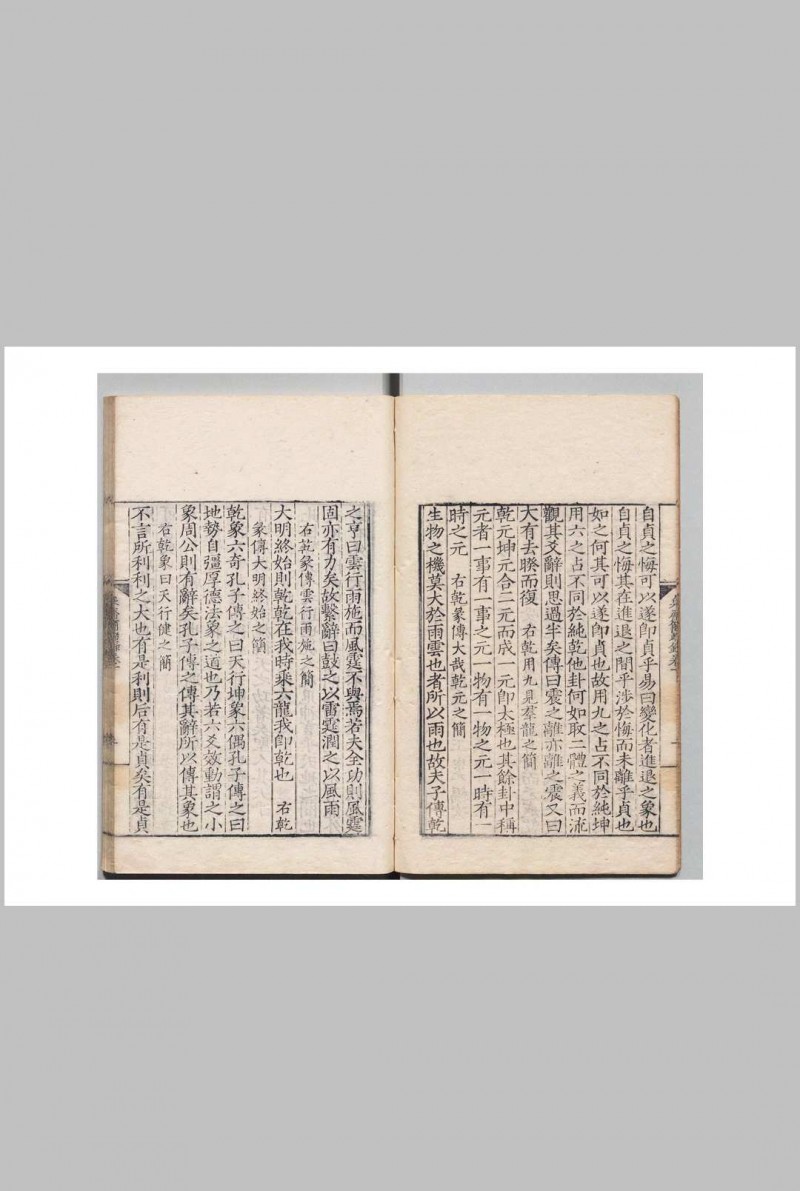 自貞之悔可以遂卽貞乎易曰變化者進退之象也
自貞之悔其在進退之間乎涉於悔而未離乎貞也
如之何其可以遂卽貞也故用九之占不同於純坤
用六之占不同於純乾他卦何如取二體之義而流
觀其爻辭則思過半矣傳曰震之離亦離之震又曰
大有去睽而復 右乾用九見羣龍之簡
乾元坤元合二元而成一元卽太極也其餘卦中稱
元者一事有一事之元一物有一物之元一時有一
時之元 右乾彖傳大哉乾元之簡
生物之機莫大於雨雲也者所以雨也故夫子傳乾
之亨曰雲行雨施而風霆不與焉若夫全功則風霆
固亦有力矣故繫辭曰鼓之以雷霆潤之以風雨
右乾彖傳雲行雨施之簡
大明終始則乾乾在我時乘六龍我卽乾也 右乾
彖傳大明終始之簡
乾象六奇孔子傳之曰天行坤象六偶孔子傳之曰
地勢自彊厚德法象之道也乃若六爻效動謂之小
象周公則有辭矣孔子傳之傳其辭所以傳其象也
右乾象曰天行健之簡
不言所利利之大也有是利則后有是貞矣有是貞